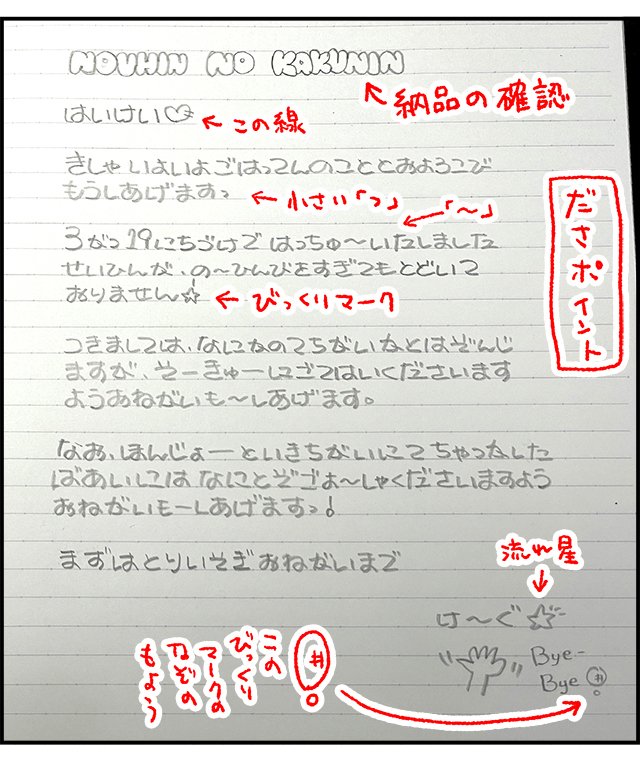 NOUHIN NO KAKUNIN
納品の確認
はいけい♡
この線
きしゃいよいよごはってんのこととおよろこび
もうしあげますっ
小さい「っ」
「～」
3がつ19にちづけで はっちゅ～いたしました
せいひんが、の～ひんびをすぎてもとどいて
おりません☆
びっくりマーク
ださポイント
つきましては、なにかのてちがいかとはぞんじ
ますが、そーきゅーにごてはいくださいます
ようおねがいも～しあげます。
なお、ほんじょーといきちがいにてちゃっかした
ばあいにはなにとぞごよ～しゃくださいますよう
おねがいもーしあげますっ!
まずはとりいそぎおねがいまで
流れ星
け～ぐ☆
Bye-
Bye
この
びっくり
マークの
なぞの
もよう
#